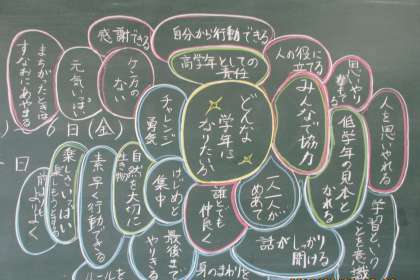 感謝できる
自分から行動できる
人の役に
立てる
思いやり
高学年としての
責任
ケンカの
ない
元気いっぱい
まちがったときは
すなおにあやまる
チャレンジ
勇気
どんな
学年に
なりたい？
みんなで協力
低学年の見本と
なれる
人を思いやれる
6日(金)
日
自然を大切に
生き物
けじめと
集中
誰とでも
仲良く
一人一人が
めあて
素早く行動できる
楽しさいっぱい
最後まで
やりきる
身のまわりを
話がしっかり
聞ける
学習という
ことを意識